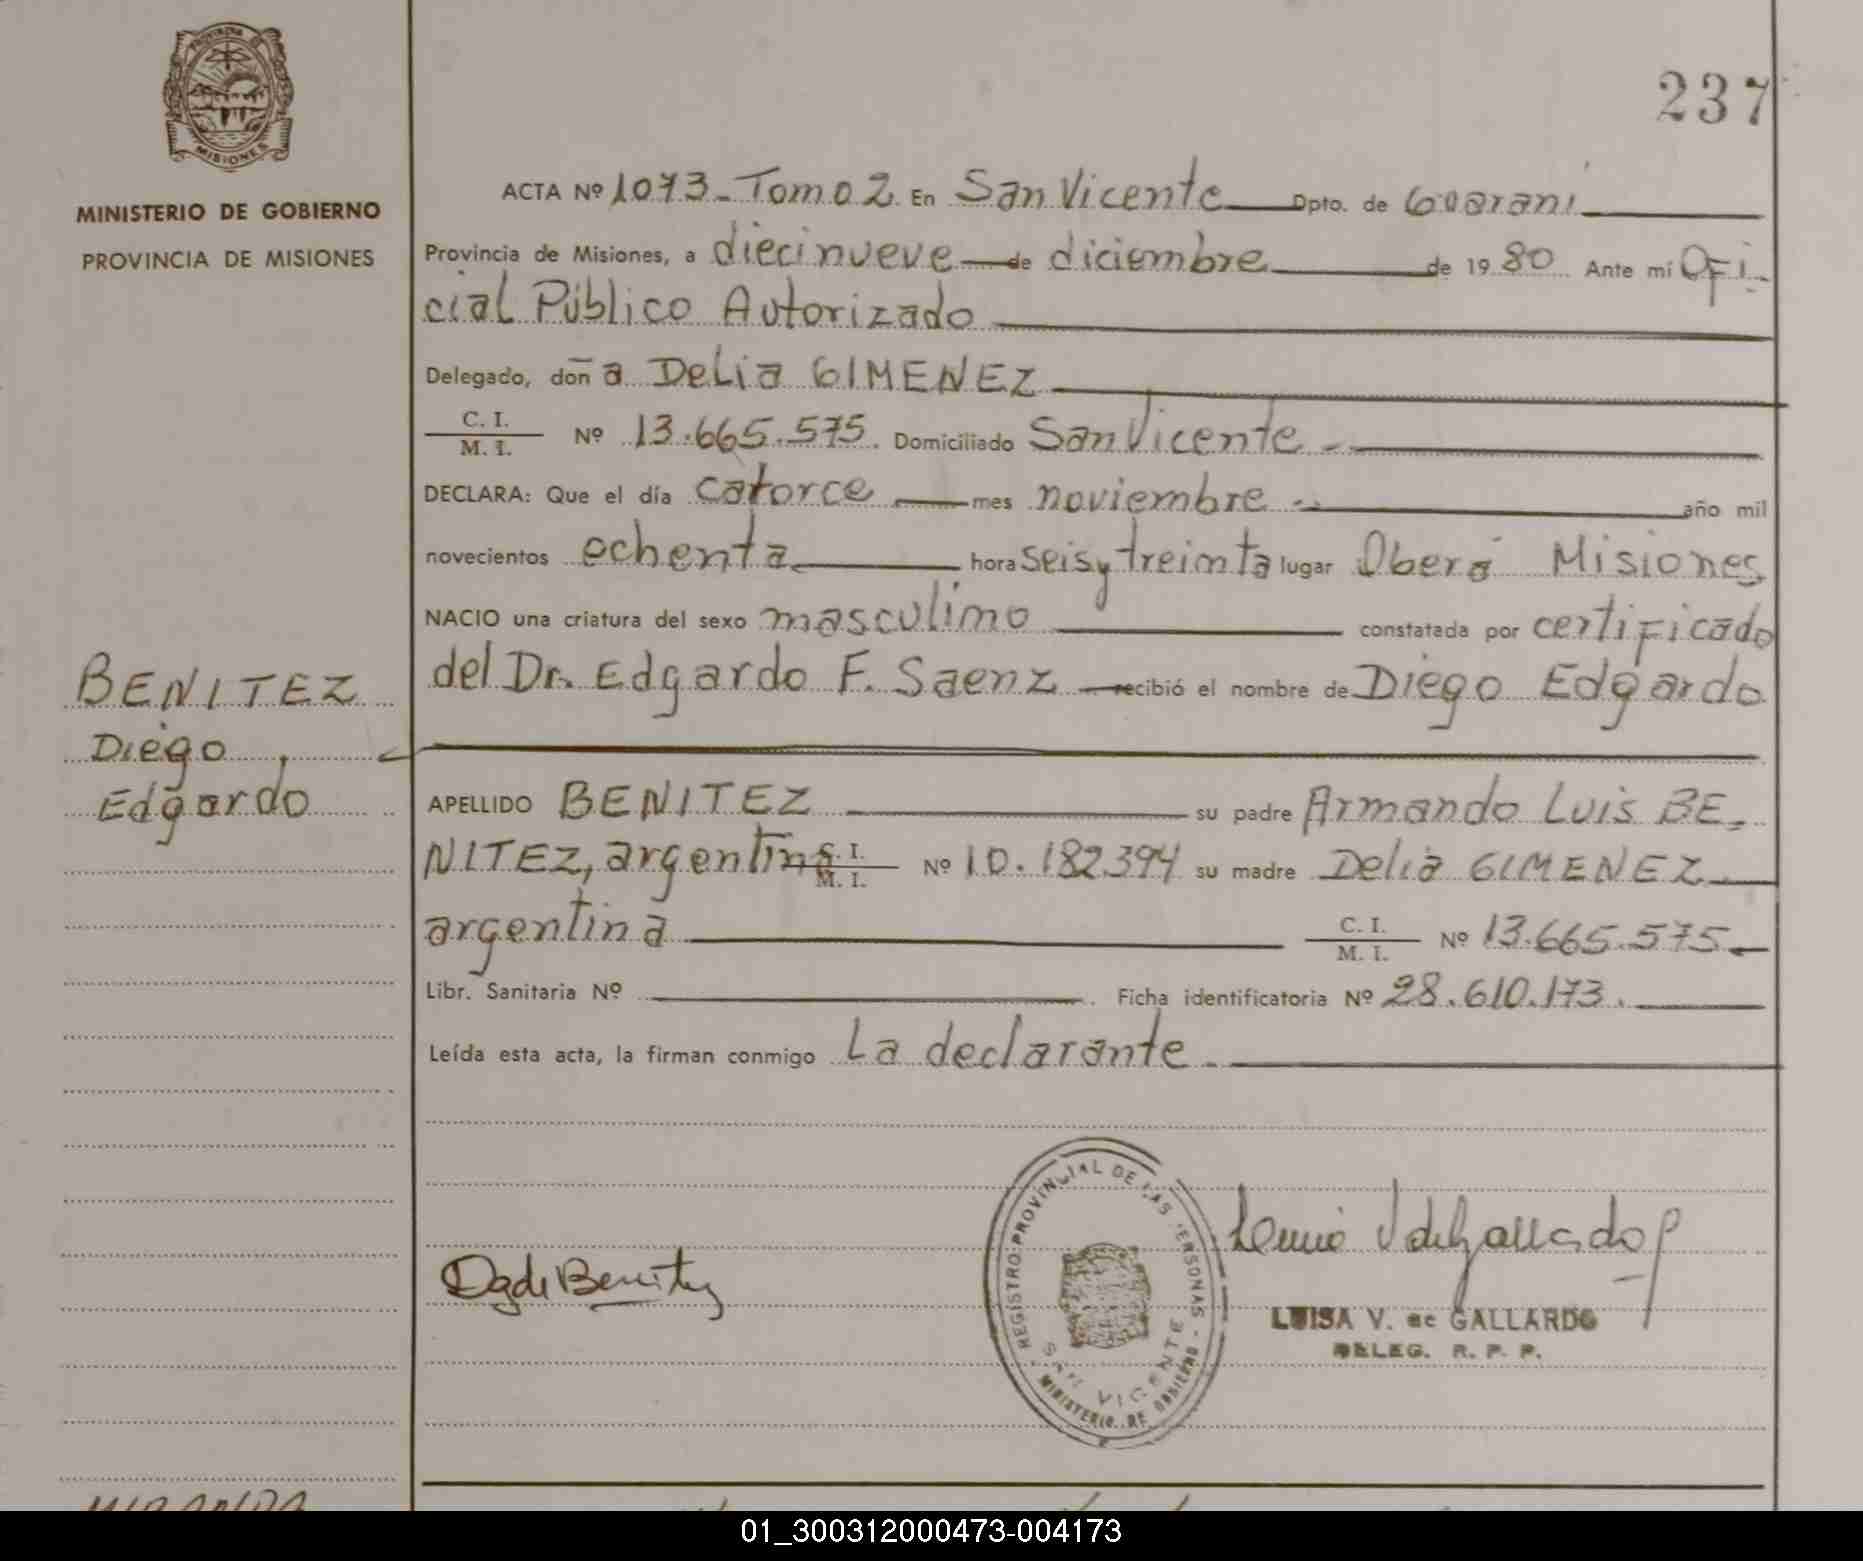 237
PROVINCIA DE
MISIONES
MINISTERIO DE GOBIERNO
PROVINCIA DE MISIONES
ACTA Nº 1073-Tomo 2 En San Vicente Dpto. de Guarani
Provincia de Misiones, a diecinueve de diciembre de 19 80 Ante mí Ofi-
cial Público Autorizado
Delegado, doña Delia GIMENEZ
C. I.
M. I. Nº 13.665.575. Domiciliado San Vicente
DECLARA: Que el día catorce mes noviembre año mil
novecientos ochenta hora seis y treinta lugar Oberá Misiones
NACIO una criatura del sexo masculino constatada por certificado
del Dr. Edgardo F. Saenz recibió el nombre de Diego Edgardo
BENITEZ
Diego
Edgardo
APELLIDO BENITEZ su padre Armando Luis BE-
NITEZ, argentino C. I. M. I. Nº 10.182394 su madre Delia GIMENEZ
argentina C. I. M. I. Nº 13.665.575
Libr. Sanitaria Nº Ficha identificatoria Nº 28.610.173.
Leída esta acta, la firman conmigo La declarante.
REGISTRO PROVINCIAL DE LAS PERSONAS
SAN VICENTE
MINISTERIO DE GOBIERNO
de Benitez
LUISA V. de GALLARDO
DELEG. R. P. P.
MIRANDA
01_300312000473-004173